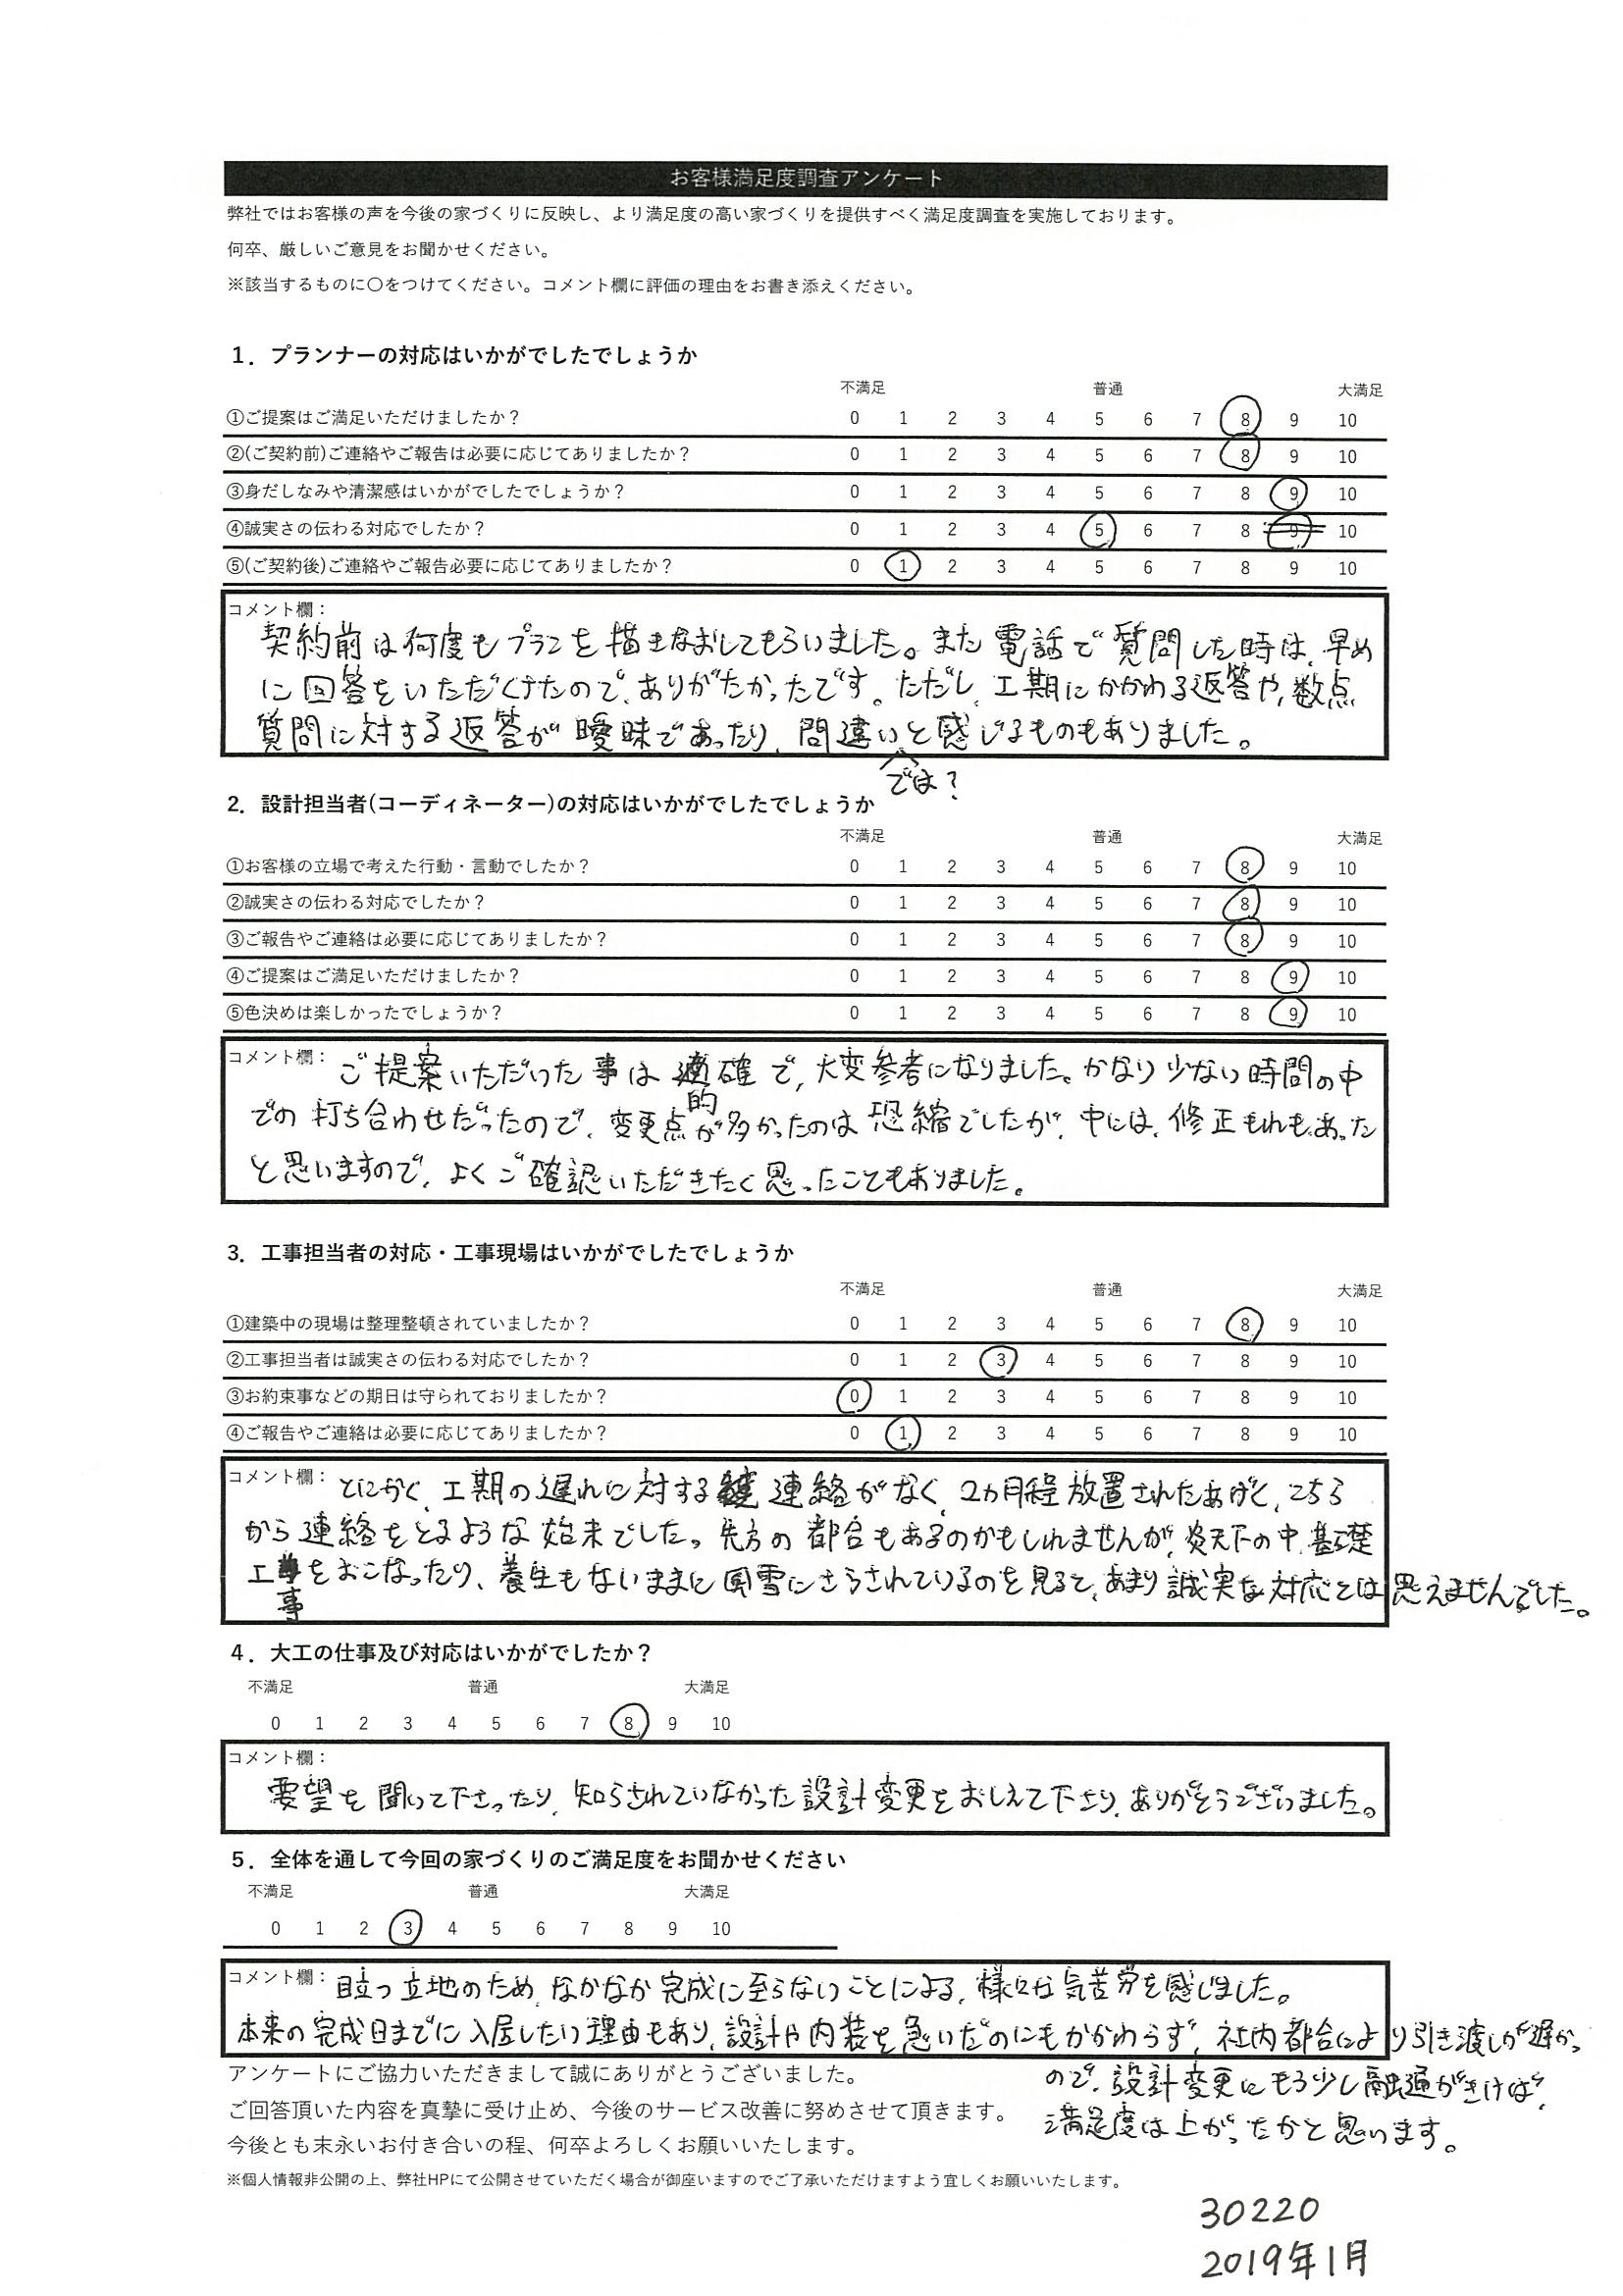 お客様満足度調査アンケート
弊社ではお客様の声を今後の家づくりに反映し、より満足度の高い家づくりを提供すべく満足度調査を実施しております。
何卒、厳しいご意見をお聞かせください。
※該当するものに〇をつけてください。コメント欄に評価の理由をお書き添えください。
1．プランナーの対応はいかがでしたでしょうか
不満足 普通 大満足
①ご提案はご満足いただけましたか？ 0 1 2 3 4 5 6 7 8 9 10
②(ご契約前)ご連絡やご報告は必要に応じてありましたか？ 0 1 2 3 4 5 6 7 8 9 10
③身だしなみや清潔感はいかがでしたでしょうか？ 0 1 2 3 4 5 6 7 8 9 10
④誠実さの伝わる対応でしたか？ 0 1 2 3 4 5 6 7 8 9 10
⑤(ご契約後)ご連絡やご報告必要に応じてありましたか？ 0 1 2 3 4 5 6 7 8 9 10
コメント欄：
契約前は何度もプランを描きなおしてもらいました。また電話で質問した時は、早め
に回答をいただけたので、ありがたかったです。ただし、工期にかかわる返答や、数点
質問に対する返答が曖昧であったり、間違いと感じるものもありました。
では？
2．設計担当者(コーディネーター)の対応はいかがでしたでしょうか
不満足 普通 大満足
①お客様の立場で考えた行動・言動でしたか？ 0 1 2 3 4 5 6 7 8 9 10
②誠実さの伝わる対応でしたか？ 0 1 2 3 4 5 6 7 8 9 10
③ご報告やご連絡は必要に応じてありましたか？ 0 1 2 3 4 5 6 7 8 9 10
④ご提案はご満足いただけましたか？ 0 1 2 3 4 5 6 7 8 9 10
⑤色決めは楽しかったでしょうか？ 0 1 2 3 4 5 6 7 8 9 10
コメント欄： ご提案いただいた事は適確で、大変参考になりました。かなり少ない時間の中
的
での打ち合わせだったので、変更点が多かったのは恐縮でしたが、中には、修正もれもあった
と思いますので、よくご確認いただきたく思ったこともありました。
3．工事担当者の対応・工事現場はいかがでしたでしょうか
不満足 普通 大満足
①建築中の現場は整理整頓されていましたか？ 0 1 2 3 4 5 6 7 8 9 10
②工事担当者は誠実さの伝わる対応でしたか？ 0 1 2 3 4 5 6 7 8 9 10
③お約束事などの期日は守られておりましたか？ 0 1 2 3 4 5 6 7 8 9 10
④ご報告やご連絡は必要に応じてありましたか？ 0 1 2 3 4 5 6 7 8 9 10
コメント欄： とにかく、工期の遅れに対する連絡がなく、2カ月程放置されたあげく、こちら
から連絡をとるような始末でした。先方の都合もあるのかもしれませんが、炎天下の中、基礎
工事をおこなったり、養生もないままに風雪にさらされているのを見ると、あまり誠実な対応とは思えませんでした。
事
4．大工の仕事及び対応はいかがでしたか？
不満足 普通 大満足
0 1 2 3 4 5 6 7 8 9 10
コメント欄：
要望を聞いて下さったり、知らされていなかった設計変更をおしえて下さり、ありがとうございました。
5．全体を通して今回の家づくりのご満足度をお聞かせください
不満足 普通 大満足
0 1 2 3 4 5 6 7 8 9 10
コメント欄： 目立つ立地のため、なかなか完成に至らないことによる、様々な気苦労を感じました。
本来の完成日までに入居したい理由もあり、設計や内装を急いだのにもかかわらず、社内都合により引き渡しが遅かった
ので、設計変更にもう少し融通がきけば、
満足度は上がったかと思います。
アンケートにご協力いただきまして誠にありがとうございました。
ご回答頂いた内容を真摯に受け止め、今後のサービス改善に努めさせて頂きます。
今後とも末永いお付き合いの程、何卒よろしくお願いいたします。
※個人情報非公開の上、弊社HPにて公開させていただく場合が御座いますのでご了承いただけますよう宜しくお願いいたします。
30220
2019年1月